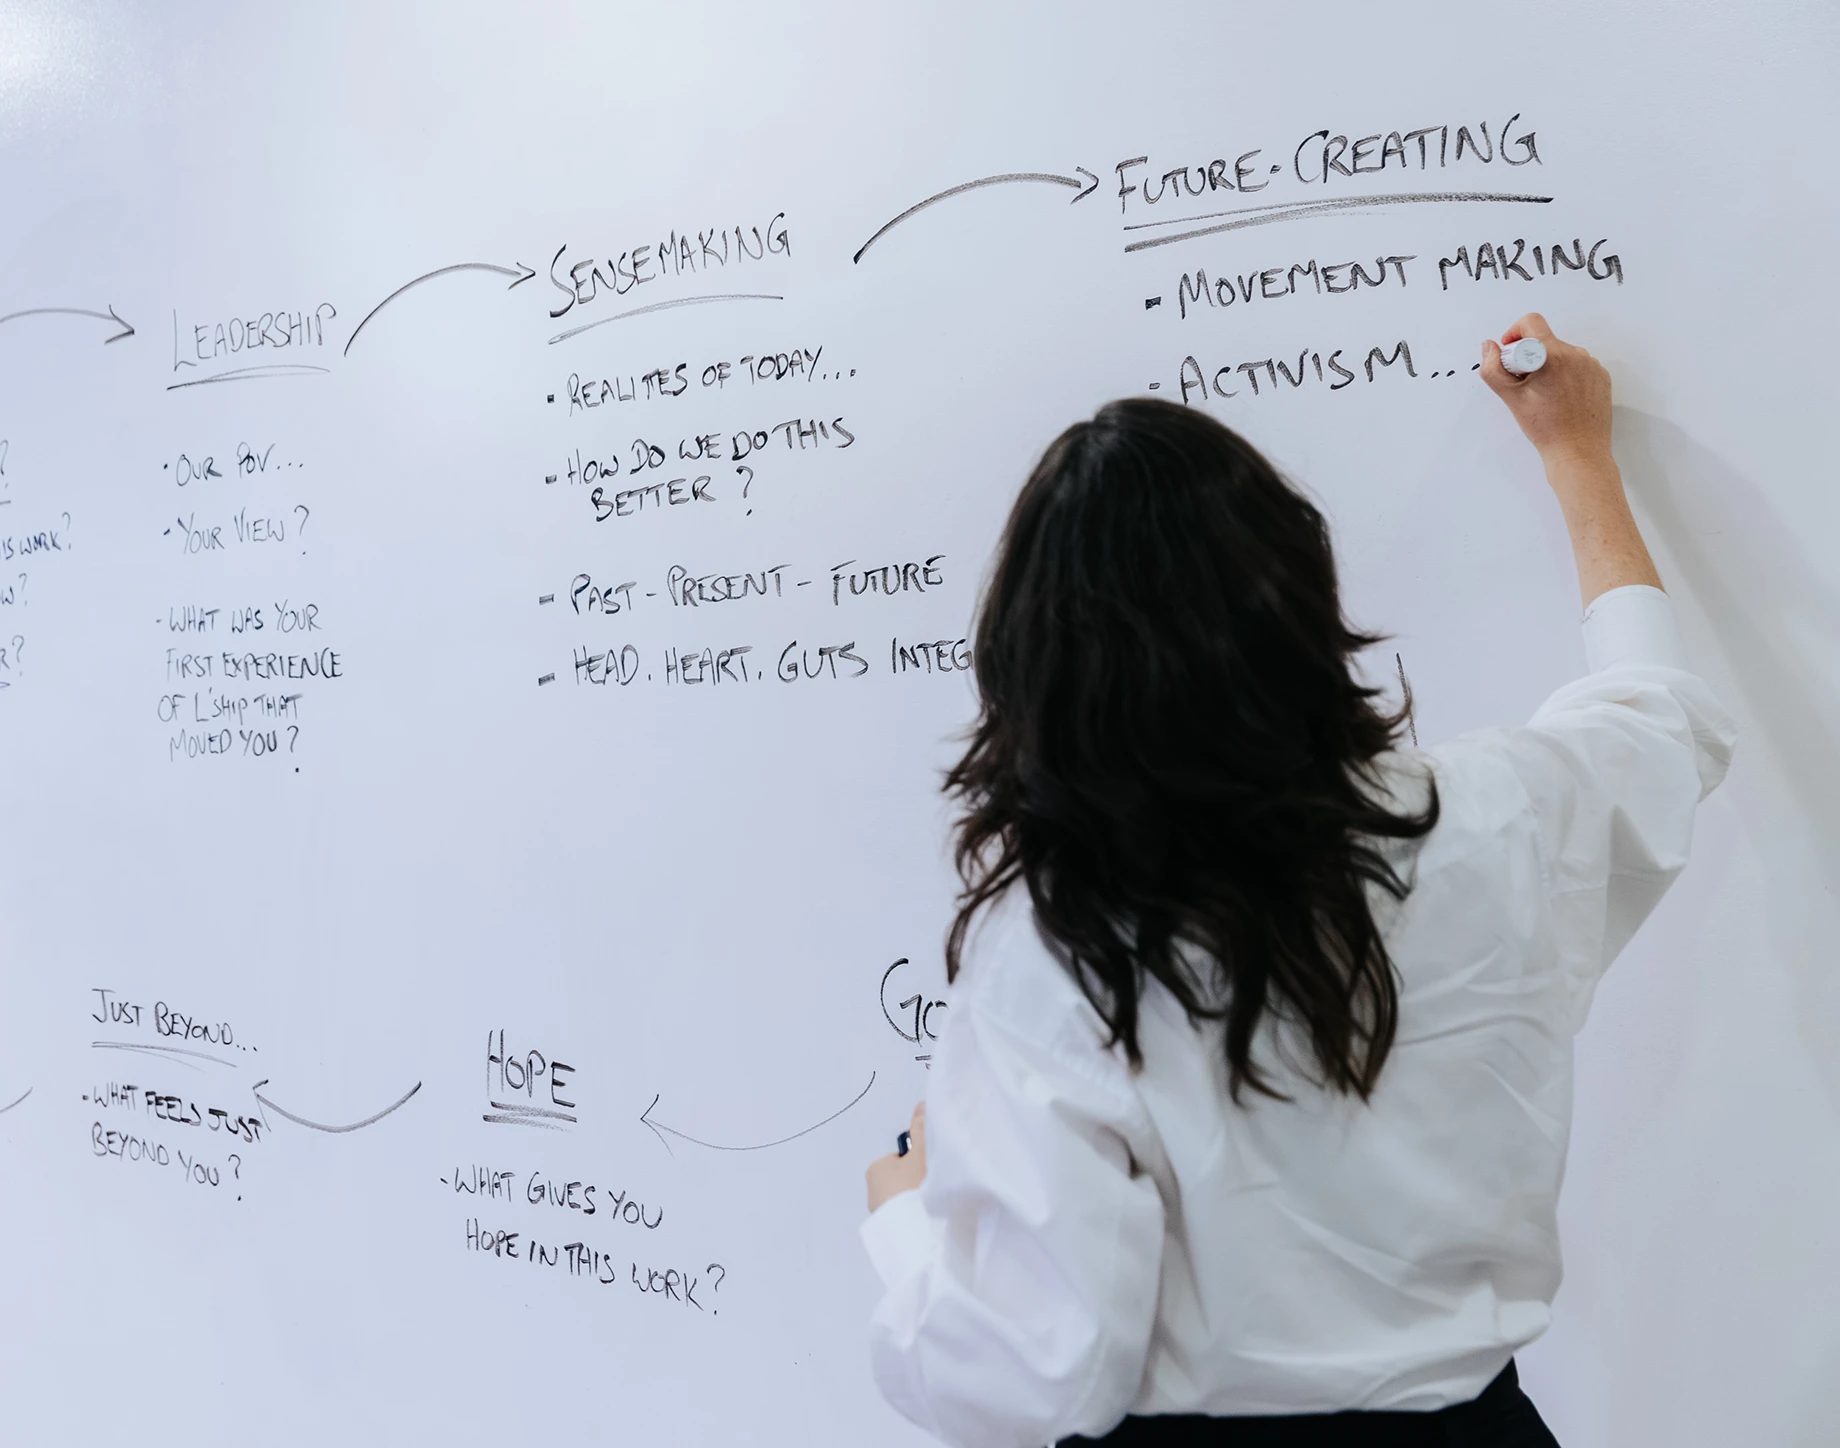 LEADERSHIP
• OUR POV...
- YOUR VIEW?
- WHAT WAS YOUR
FIRST EXPERIENCE
OF L'SHIP THAT
MOVED YOU?
SENSEMAKING
• REALITES OF TODAY...
- HOW DO WE DO THIS
BETTER?
- PAST - PRESENT - FUTURE
- HEAD. HEART. GUTS
FUTURE-CREATING
- MOVEMENT MAKING
- ACTIVISM...
WORK?
HOPE
- WHAT GIVES YOU
HOPE IN THIS WORK?
JUST BEYOND...
- WHAT FEELS JUST
BEYOND YOU?